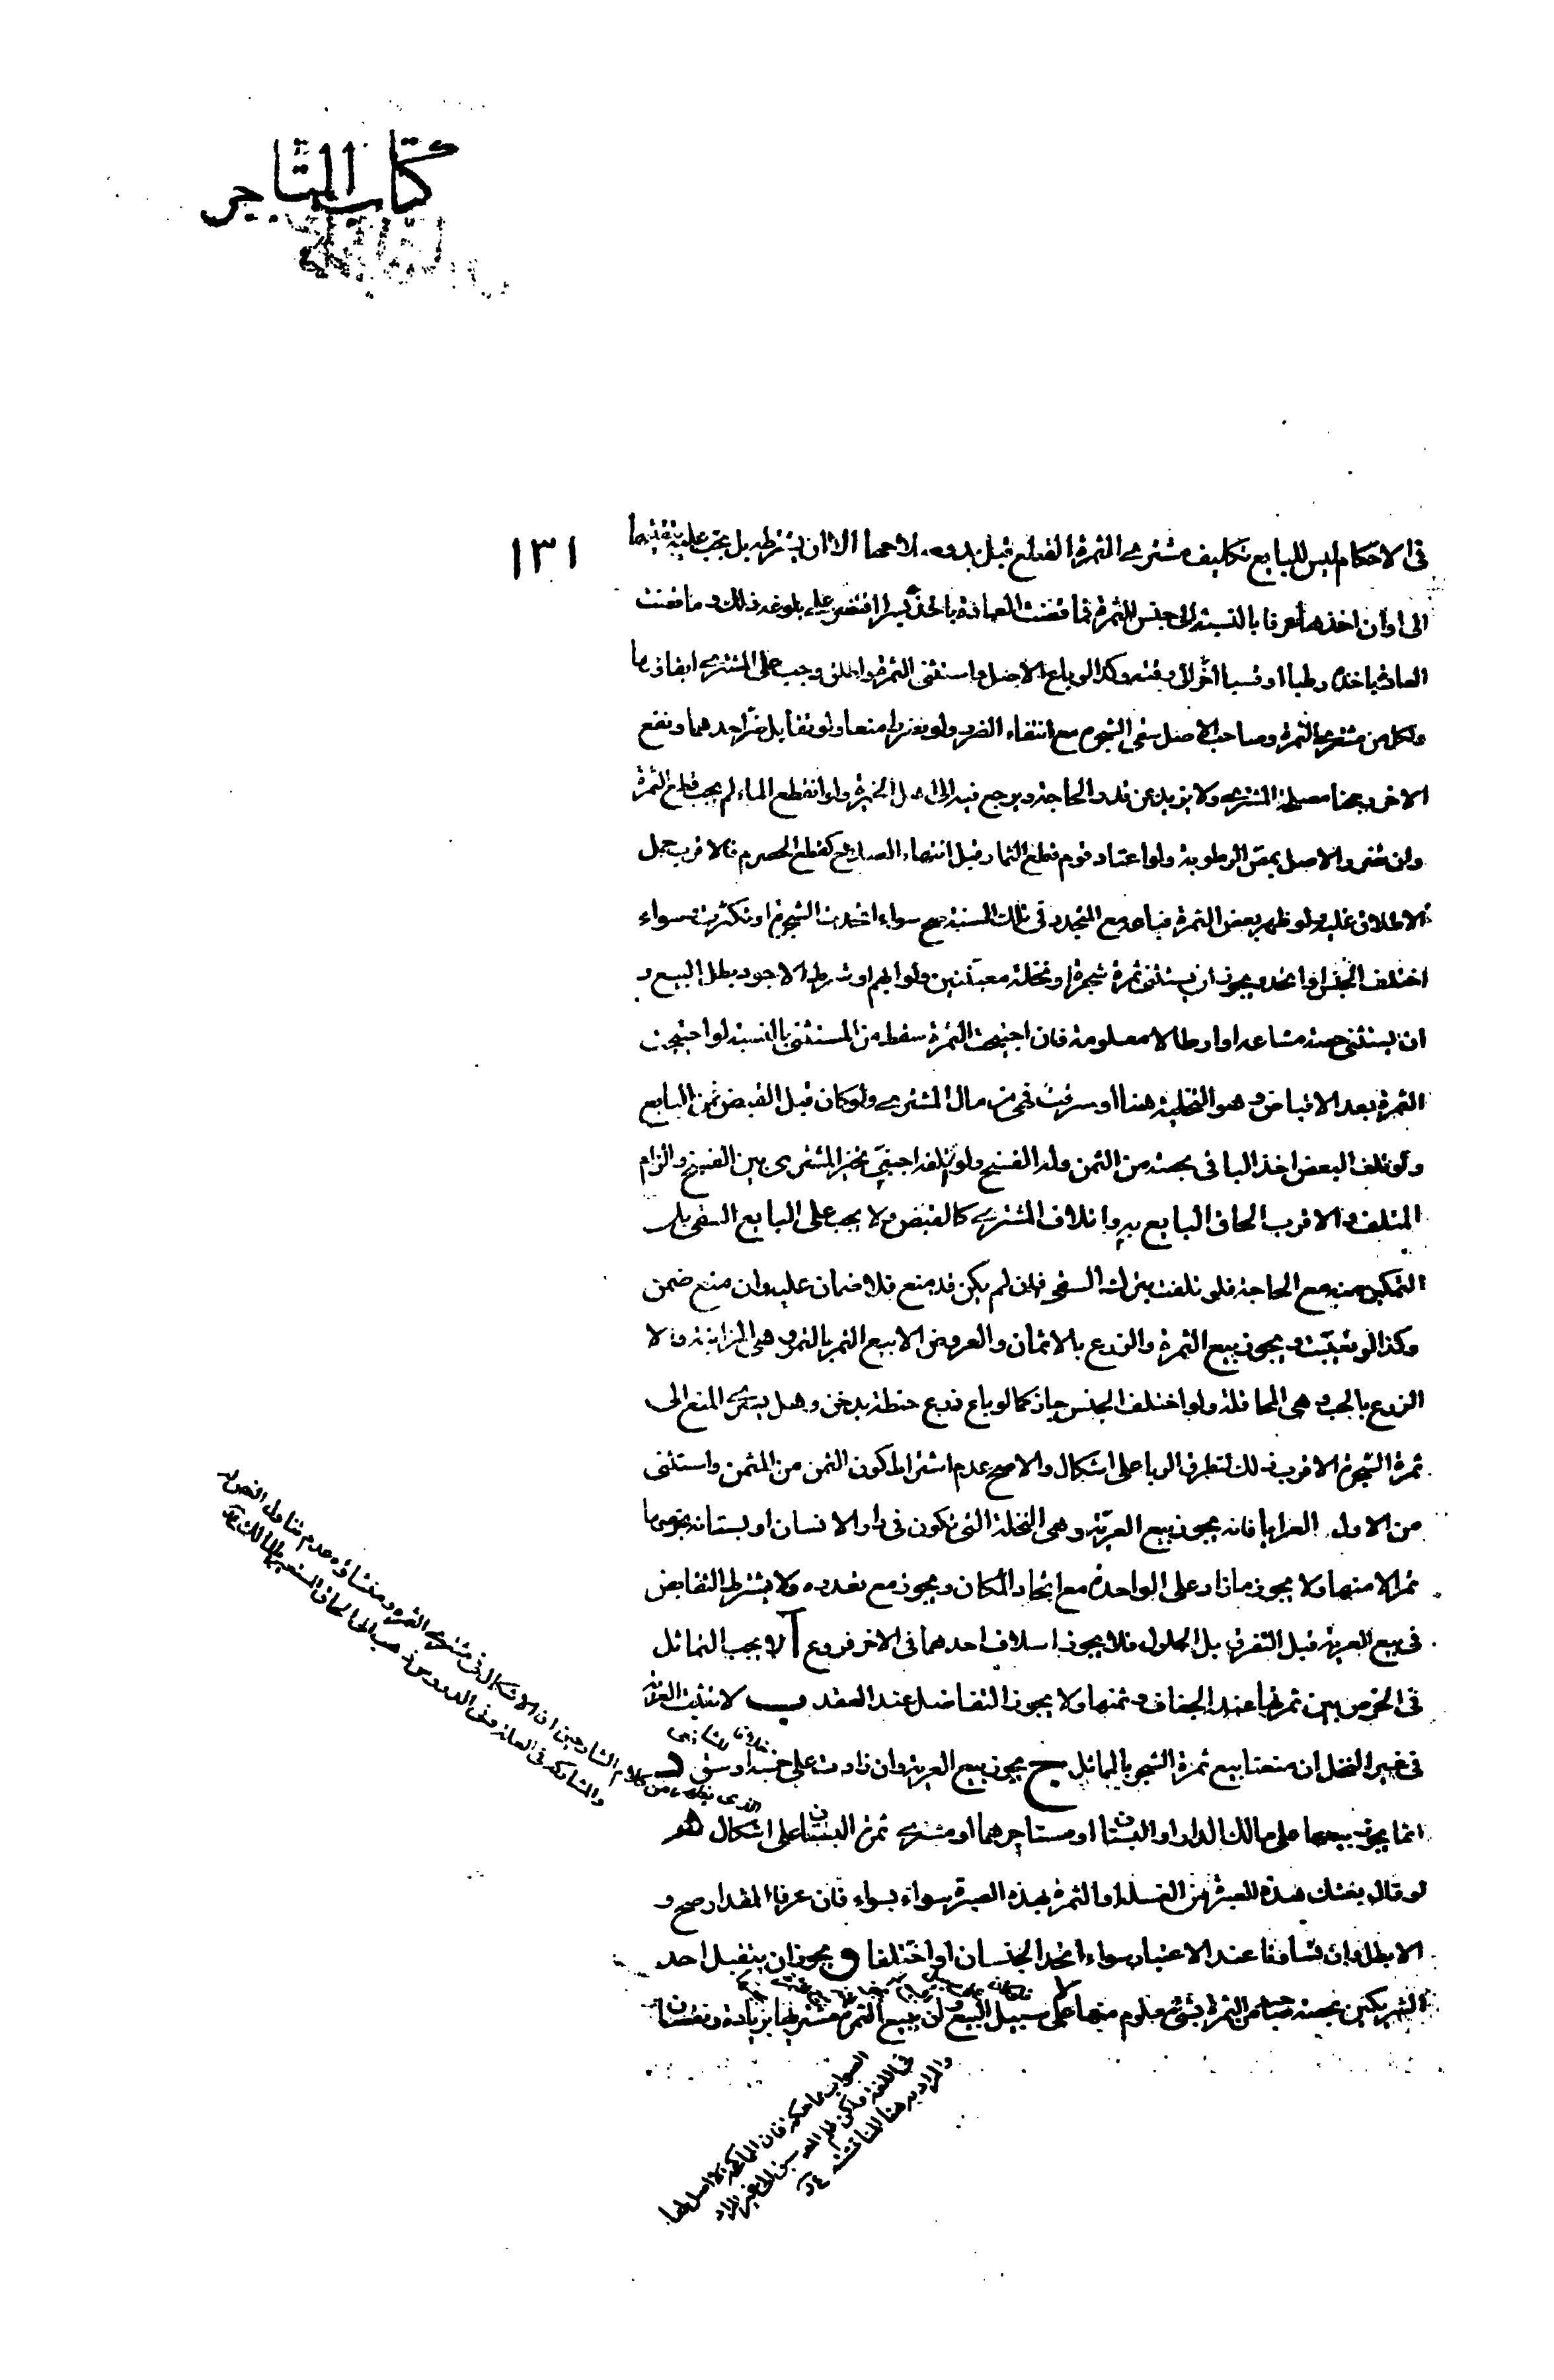 كتاب المتاجر
١٣١
في الاحكام ليس للبايع تكليف مشتري الثمرة القطع قبل بدو صلاحها الا ان يشترطه بل يجب عليه تبقيتها
الى اوان اخذها عرفا بالنسبة الى جنس الثمرة فما قضت العادة باخذه بسرا اقتصر على بلوغه ذلك وما قضت
العادة باخذه رطبا او قسبا اخر الى وقته وكذا لو باع الاصل واستثنى الثمرة واطلق وجب على المشتري ابقاؤها
ولكل من مشتري الثمرة وصاحب الاصل سقي الشجر مع انتفاء الضرر ولو تضررا منعا ولو تقابل ضرر احدهما ونفع
الاخر رجحنا مصلحة المشتري ولا يزيد عن قدر الحاجة ويرجع فيه الى اهل الخبرة ولو انقطع الماء لم يجب قطع الثمرة
وان تضرر الاصل بمص الرطوبة ولو اعتاد قوم قطع الثمار قبل انتهاء الصلاح كقطع الحصرم فالاقرب حمل
الاطلاق عليه ولو ظهر بعض الثمرة فباعه مع المتجدد في تلك السنة صح سواء اتحدت الشجرة او تكثرت سواء
اختلف الجنس او اتحد ويجوز ان يستثنى ثمرة شجرة او نخلة معينتين ولو ابهم او شرط الاجود بطل البيع و
ان يستثنى حصة مشاعة او ارطالا معلومة فان اجتيحت الثمرة سقط من المستثنى بالنسبة لو اجتيحت
الثمرة بعد الاقباض وهو التخلية هنا او سرقت فهي من مال المشتري ولو كان قبل القبض فمن البايع
ولو تلف البعض اخذ الباقي بحصته من الثمن وله الفسخ ولو اتلفه اجنبي تخير المشتري بين الفسخ والزام
المتلف والاقرب الحاق البايع به واتلاف المشتري كالقبض ولا يجب على البايع السقي بل
التمكين منه مع الحاجة فلو تلفت بترك السقي فان لم يكن قد منع فلا ضمان عليه وان منع ضمن
وكذا لو تعيبت ويجوز بيع الثمرة والزرع بالاثمان والعروض الا بيع الثمر بالتمر وهي المزابنة والا
الزرع بالحب وهي المحاقلة ولو اختلف الجنس جاز كما لو باع زرع حنطة بدخن وهل يسري المنع الى
ثمرة الشجر الاقرب ذلك لتطرق الربا على اشكال والاصح عدم اشتراط كون الثمن من المثمن واستثنى
من الاول العرايا فانه يجوز بيع العرية وهي النخلة التي تكون في دار الانسان او بستانه بخرصها
تمرا لا منها ولا يجوز ما زاد على الواحدة مع اتحاد المكان ويجوز مع تعدده ولا يشترط التقابض
في بيع العرية قبل التفرق بل الحلول فلا يجوز اسلاف احدهما في الاخر فروع آ لا يجب التماثل
في الخرص بين ثمرتها عند الجفاف وثمنها ولا يجوز التفاضل عند العقد ب لا تثبت العرية
في غير النخل ان منعنا بيع ثمرة الشجر بالمماثل ج يجوز بيع العرية وان زادت على خمسة اوسق د
انما يجوز بيعها على مالك الدار او البستان او مستاجرهما او مشتري ثمرة البستان على اشكال ه
لو قال بعتك هذه الصبرة من الغلة او الثمرة بهذه الصبرة سواء بسواء فان عرفا المقدار صح و
الا بطل وان تساوتا عند الاعتبار سواء اتحد الجنسان او اختلفا و يجوز ان يتقبل احد
الشريكين بحصة صاحبه من الثمرة بشئ معلوم منها لا على سبيل البيع وان يبيع الثمرة مشتريها بزيادة ونقصان
خلافا للشافعي
الذي يظهر من كلام الشارحين ان الاشكال في مشتري الثمرة ومنشاؤه عدم تناول النص له
والمشاركة في العلة وفي الدروس